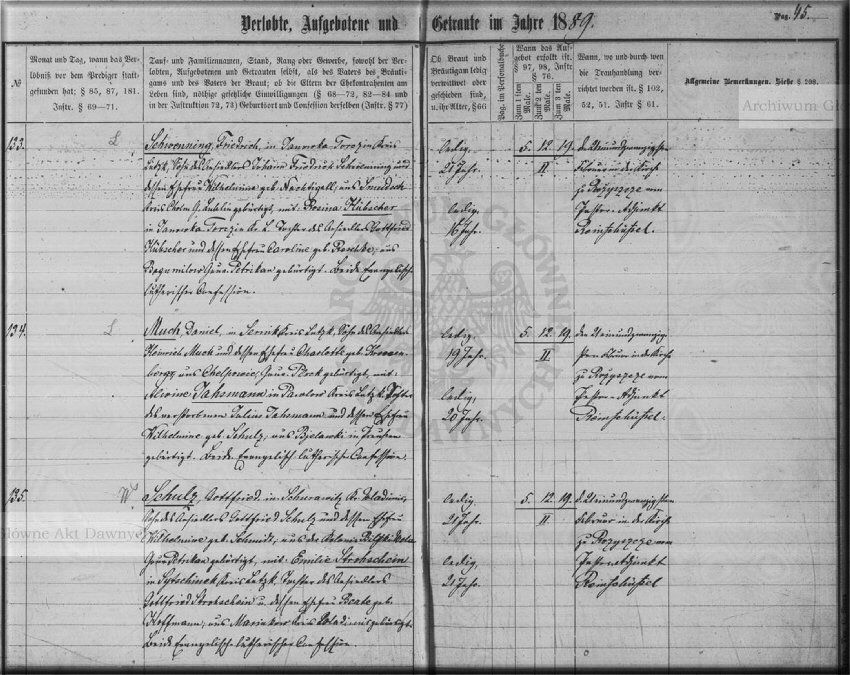 Verlobte, Aufgebotene und Getraute im Jahre 1889.
Pag. 45.
№
Monat und Tag, wann das Verlöbniß vor dem Prediger stattgefunden hat; § 85, 87, 181. Instr. § 69—71.
Tauf- und Familiennamen, Stand, Rang oder Gewerbe, sowohl der Verlobten, Aufgebotenen und Getrauten selbst, als des Vaters des Bräutigams und des Vaters der Braut; ob die Eltern der Contrahenten am Leben sind, nöthige gesetzliche Einwilligungen (§ 68—72, 82—84 und in der Instruktion 72, 73) Geburtsort und Confession derselben (Instr. § 77)
Ob Braut und Bräutigam ledig verwittwet oder geschieden sind, u. ihr Alter, §66
Pag. im Personalbuche
Wann das Aufgebot erfolgt ist. § 97, 98, Instr § 76.
Zum 1 sten Male.
Zum 2 ten Male.
Zum 3 ten Male.
Wann, wo und durch wen die Trauhandlung verrichtet worden ist. § 102, 52, 51. Instr § 61.
Allgemeine Bemerkungen. Siehe § 208.
133.
L
Schwenning, Friedrich, in Janowka-Torczin Kreis
Lutzk, Sohn des Ansiedlers Johann Friedrich Schwenning und
dessen Ehefrau Wilhelmine geb. Nachtigall; aus
gebürtigt, mit: Rosina Hübscher
in Janowka Torczin Kr. L. Tochter des Ansiedlers Gottfried
Hübscher und dessen Ehefrau Caroline geb. Raschke; aus
Bogumilow Gouv. Petrikau gebürtigt. Beide Evangelisch-
lutherischer Confession.
ledig
21 Jahr.
ledig,
16 Jahr.
5. 12. 19.
II
den Einundzwanzigsten
Februar in der Kirche
zu Rożyszcze vom
Pastor-Adjunkt
134.
L
Much Daniel, in Sernik Kreis Lutzk, Sohn des Ansiedlers
Heinrich Much und dessen Ehefrau Charlotte geb.
aus Gouv. Plock gebürtigt, mit:
Alwine Jahsmann in Kreis Lutzk Tochter
des verstorbenen Julius Jahsmann und dessen Ehefrau
Wilhelmine geb. Schulz; aus in Preußen
gebürtigt. Beide Evangelisch lutherischer Confession.
ledig.
19 Jahr.
ledig,
20 Jahr.
5. 12. 19.
II.
den Einundzwanzig-
sten Februar in der Kirche
zu Rożyszcze vom
Pastor-Adjunkt
135.
W
Schulz, Gottfried. in Kr. Wladimir,
Sohn des Ansiedlers Gottfried Schulz und dessen Ehefrau
Wilhelmine geb. Schmidt; aus der Kolonie
Gouv Petrikau gebürtigt, mit: Emilie Strohschein
in Kreis Lutzk, Tochter des Ansiedlers
Gottfried Strohschein u. dessen Ehefrau Beate geb.
Hoffmann; aus Marinkow Kreis Wladimir gebürtigt.
Beide Evangelisch-lutherischer Confession.
ledig
21 Jahr.
ledig,
21 Jahr.
5. 12. 19.
II
den Einundzwanzigsten
Februar in der Kirche
zu Rożyszcze vom
Pastor Adjunkt
Archiwum Gł
Główne Akt Dawnyc